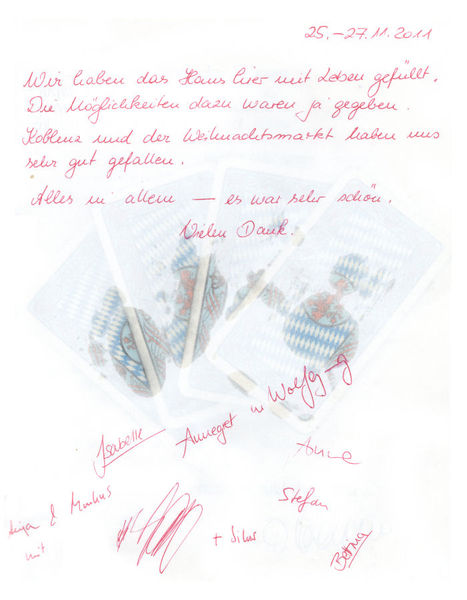 25.-27.11.2011
Wir haben das Haus hier mit Leben gefüllt.
Die Möglichkeiten dazu waren ja gegeben.
Koblenz und der Weihnachtsmarkt haben uns
sehr gut gefallen.
Alles in allem — es war sehr schön.
Vielen Dank.
Isabelle
Annegret
Wolfgang
Anne
& Markus
mit
Stefan
Bettina